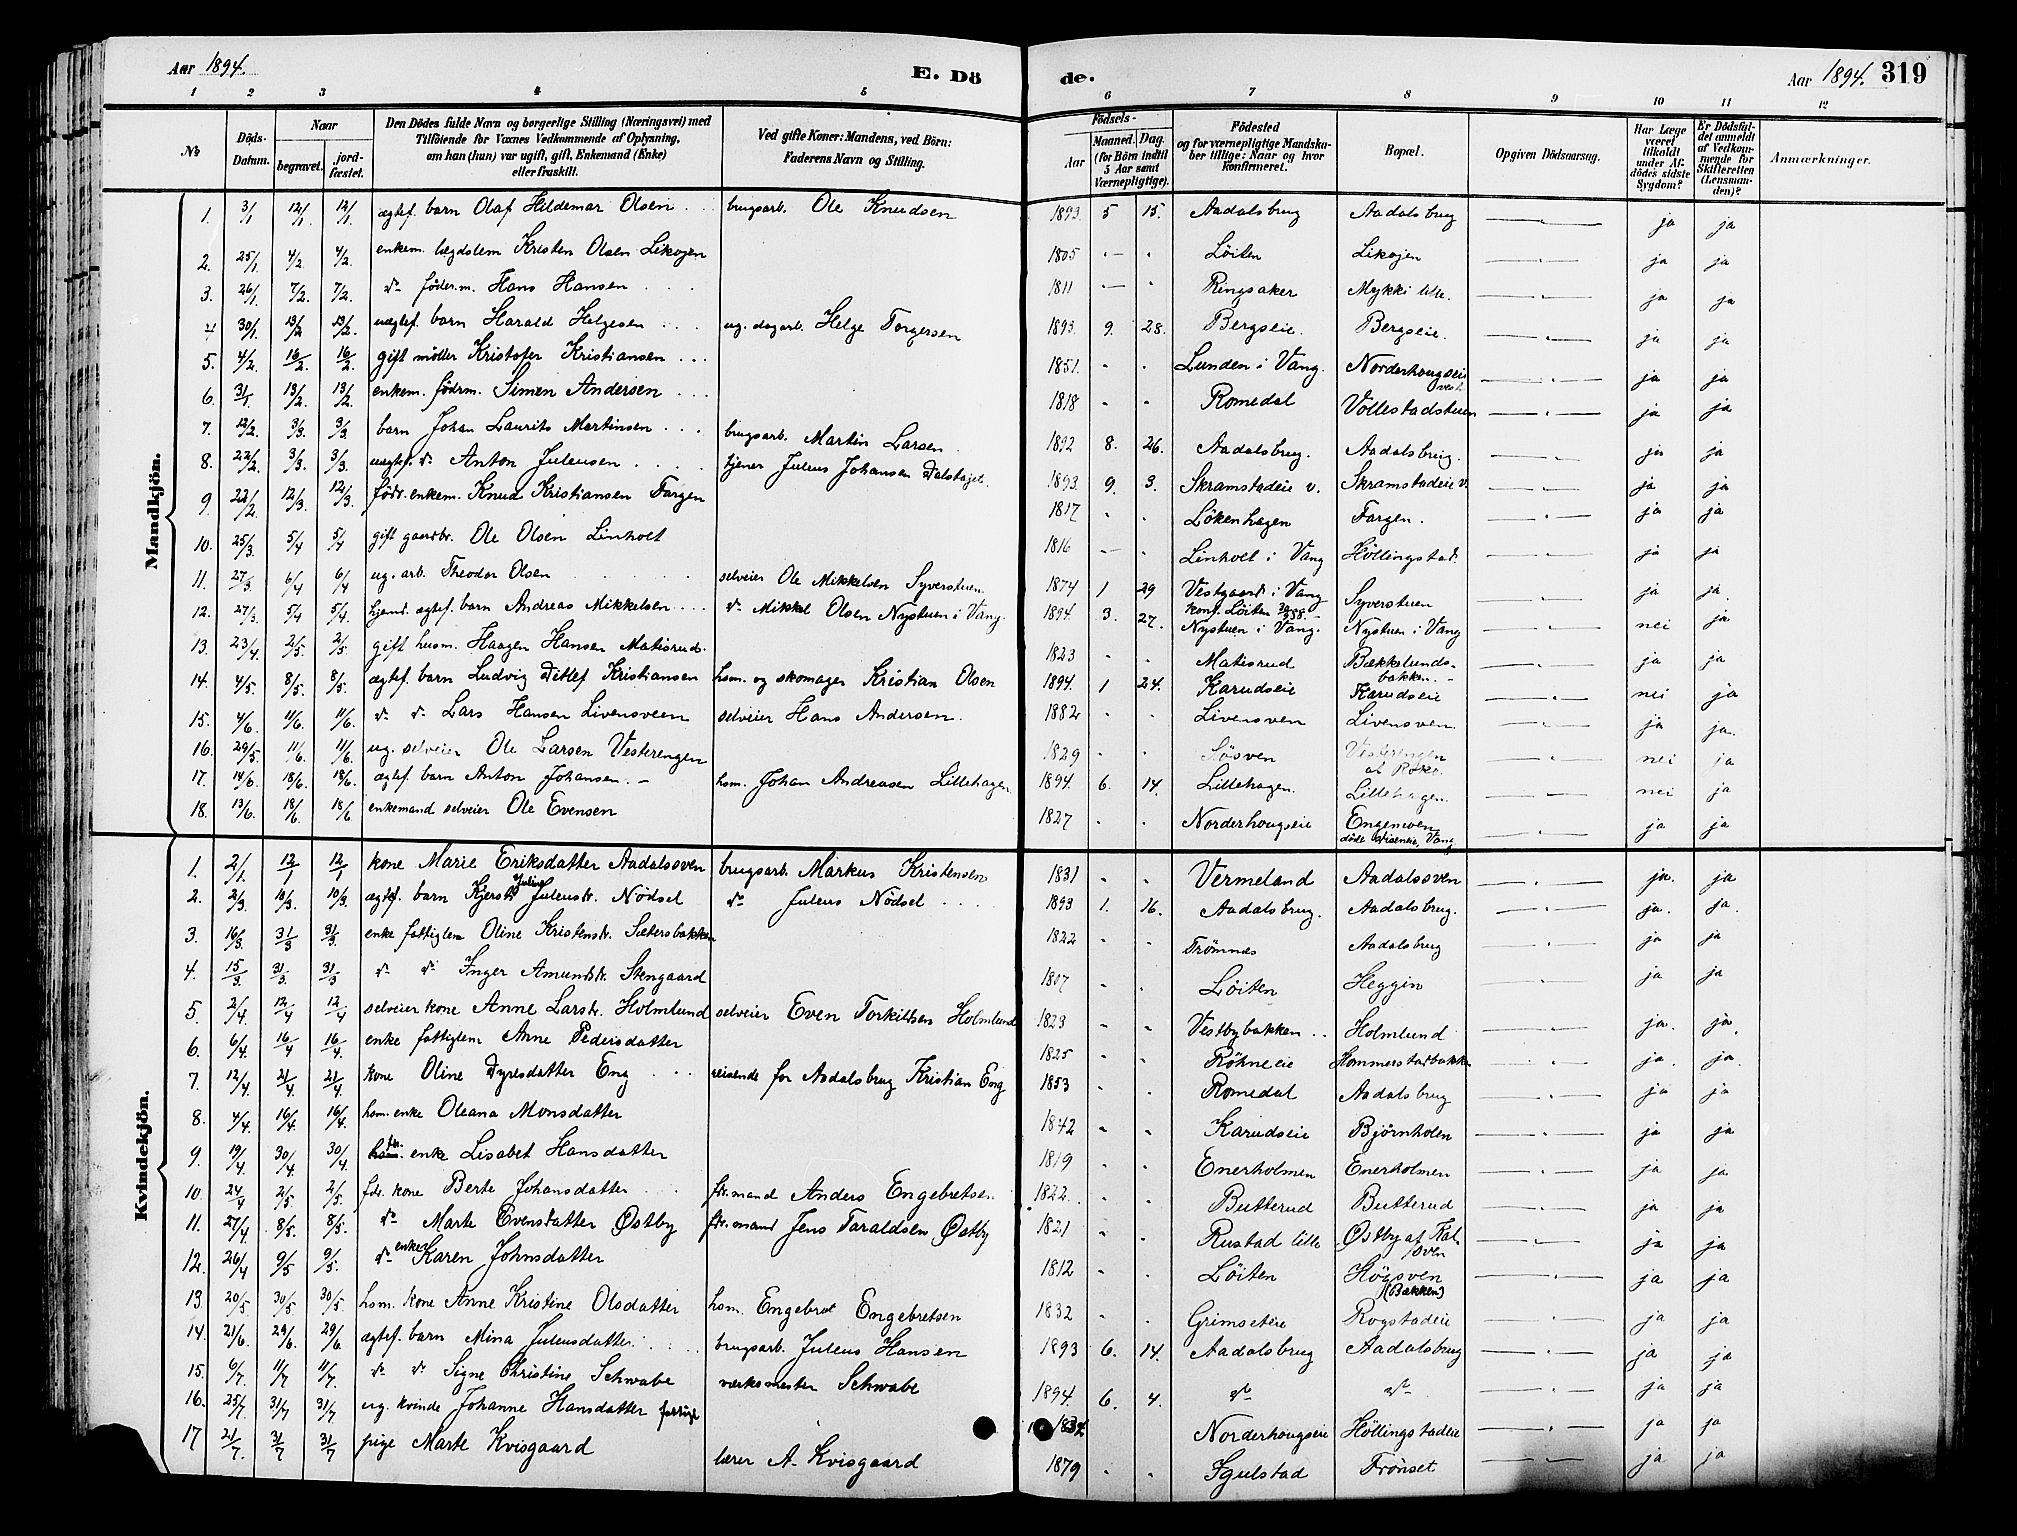 Aar 1894. E. Dö de. Aar 1894. 319
1 2 3 4 5 6 7 8 9 10 11 12
No Döds-Datum. Naar begravet. jord-fæstet. Den Dödes fulde Navn og borgerlige Stilling (Næringsvei) med Tilföiende for Voxnes Vedkommende af Oplysning, om han (hun) var ugift, gift, Enkemand (Enke) eller fraskilt. Ved gifte Koner: Mandens, ved Börn: Faderens Navn og Stilling. Födsels- Aar Maaned. Dag. (for Börn indtil 5 Aar samt Værnepligtige). Födested og for værnepligtige Mandska-ber tillige: Naar og hvor konfirmeret. Bopæl. Opgiven Dödsaarsag. Har Læge været tilkaldt under Af-dödes sidste Sygdom? Er Dödsfal-det anmeldt af Vedkom-mende for Skifteretten (Lensman-den)? Anmærkninger.
Mandkjön.
1. 3/1 12/1 12/1 ægtef. barn Olaf Hildemar Olsen brugsarb. Ole Knudsen 1893 5 15. Aadalsbrug Aadalsbrug ja ja
2. 25/1. 4/2 4/2. enkem. lægdslem Kristen Olsen Likojen 1805 Löiten Likojen ja ja
3. 26/1. 7/2. 7/2. do föder.m. Hans Hansen 1811 Ringsaker Mykki lille. ja ja
4 30/1 13/2 13/2. uægtef. barn Harald Helgesen ug. dagarb. Helge Torgersen 1893. 9. 28. Bergseie. Bergseie. ja ja
5. 4/2. 16/2 16/2. gift möller Kristofer Kristiansen 1851. Lunden i Vang. Norderhougseie vest. ja ja
6. 31/1. 13/2. 13/2. enkem. födrm. Simen Andersen 1818 Romedal Vollestadstuen ja ja
7. 12/2. 3/3. 3/3. barn Johan Laurits Martinsen brugsarb. Martin Larsen 1892 8. 26. Aadalsbrug. Aadalsbrug. ja ja
8. 22/2 3/3. 3/3. uægtef. do Anton Juleusen tjener Juleus Johansen Dalshajet. 1893. 9. 3. Skramstadeie v. Skramstadeie v. ja ja
9 22/2 12/3. 12/3. födr. enkem. Knud Kristiansen Fargen 1817 Lökenhagen Fargen. ja ja
10. 25/3 5/4 5/4 gift gaardbr. Ole Olsen Linholt 1816 Linholt i Vang Höllingstad. ja ja
11. 27/3 6/4 6/4 ug. arb. Theodor Olsen selveier Ole Mikkelsen Syverstuen. 1874 1 29 Vestgaard i Vang konf. Löiten Syverstuen ja ja.
12. 27/3. 5/4 5/4. hjemd. ægtef. barn Andreas Mikkelsen do Mikkel Olsen Nystuen i Vang. 1894. 3. 27. Nystuen i Vang. Nystuen i Vang nei ja
13. 23/4 2/5. 2/5. gift husm. Haagen Hansen Matisrud. 1823 Matisrud Bækkelunds-bakken. ja ja
14. 4/5. 8/5 8/5. ægtef. barn Ludvig Ditlef Kristiansen hsm. og skomager Kristian Olsen 1894. 1 24. Karudseie Karudseie nei ja
15. 4/6. 11/6. 11/6. do do Lars Hansen Livensveen selveier Hans Andersen. 1882 Livensven Livensven. ja ja.
16. 29/5. 11/6. 11/6. ug. selveier Ole Larsen Vesterengen 1829 Sösven Vesterengen af Röko. nei ja
17. 14/6. 18/6. 18/6. ægtef. barn Anton Johansen. hsm. Johan Andreasen Lillehagen. 1894. 6. 14. Lillehagen. Lillehagen. nei ja
18. 13/6. 18/6 18/6 enkemand selveier Ole Evensen 1827 Norderhougseie Engemoen döde Vang ja ja
Kvindekjön.
1. 2/1. 12/1 12/1 kone Marie Eriksdatter Aadalsoven brugsarb. Markus Kristensen 1831 Vermeland Aadalsoven ja. ja
2. 2/3. 10/3. 10/3. ægtef. barn Kjersti Juline Juleusdr. Nödsel do Juleus Nödsel 1893 1. 16. Aadalsbrug. Aadalsbrug. ja. ja.
3. 16/3. 31/3 31/3. enke fattiglem Oline Kristensdr. Sætersbakken 1822 Trömnes Aadalsbrug ja ja
4. 15/3. 31/3. 31/3 do do Inger Amundsdr. Stengaard 1807 Löiten Heggin ja ja
5. 2/4. 12/4 12/4 selveier kone Anne Larsdr. Holmlund selveier Even Torkildsen Holmlund 1823 Vestbybakken Holmlund ja. ja.
6. 6/4. 16/4 16/4. enke fattiglem Anne Pedersdatter 1825 Röhneeie Hommerstadbakken ja. ja.
7. 12/4. 21/4. 21/4. kone Oline Dyresdatter Eng reisende for Aadalsbrug Kristian Eng 1853 Romedal Aadalsbrug ja ja
8. 4/4. 16/4. 16/4. hsm. enke Oleana Monsdatter 1842 Karudseie Björnholen ja ja
9. 19/4 30/4. 30/4. fdr. enke Lisabet Hansdatter 1819 Enerholmen Enerholmen ja ja
10. 24/4 2/5. 2/5. fdr. kone Berte Johansdatter fdr. mand Anders Engebretsen 1822. Butterud Butterud ja ja
11. 27/4. 8/5. 8/5. do Marte Evensdatter Østby fdr. mand Jens Taraldsen Østby 1821 Rustad lille Østby af Kal-soen ja ja
12. 26/4 9/5 9/5. do enke Karen Johnsdatter 1812 Löiten Högsven (Bakken) ja ja
13. 20/5. 30/5 30/5. hsm. kone Anne Kristine Olsdatter hsm. Engebret Engebretsen 1832 Grimseteie Rogstadeie ja ja
14. 21/6 29/6. 29/6 ægtef. barn Mina Juleusdatter. brugsarb. Juleus Hansen 1893 6. 14. Aadalsbrug Aadalsbrug ja ja
15. 6/7. 11/7 11/7. do do Signe Christine Schwabe værksmester Schwabe 1894. 6. 4. do do ja ja
16. 25/7. 31/7 31/7. ug. kvinde Johanne Hansdatter fattigl 1834 Norderhougseie Höllingstadeie ja ja
17 21/7. 31/7 31/7 pige Marte Kvisgaard lærer A. Kvisgaard 1879 Sgulstad Frönset ja ja